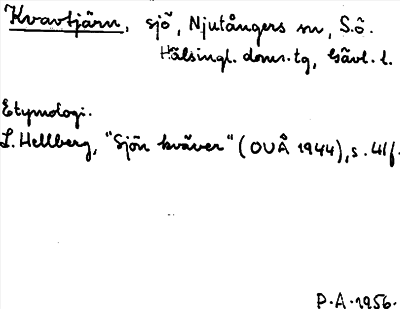 Kvavtjärn, sjö, Njutångers sn, S.ö.
Hälsingl. doms. tg, Gävl. l.
Etymologi.
L. Hellberg, "Sjön kväver" (OUÅ 1944), s. 41f.
P.A. 1956.